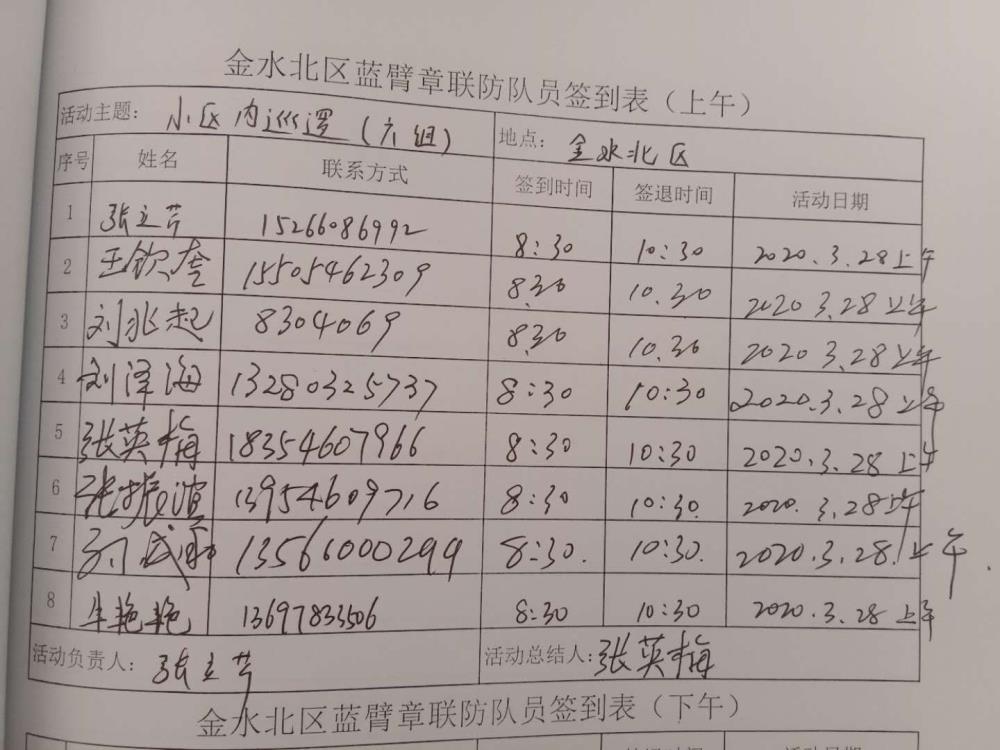 金水北区蓝臂章联防队员签到表（上午）
活动主题： 小区内巡逻（六组） 地点： 金水北区
序号 姓名 联系方式 签到时间 签退时间 活动日期
1 张立芹 15266086992 8:30 10:30 2020.3.28上午
2 王钦奎 15505462309 8.30 10.30 2020 3.28上午
3 刘兆起 8304069 8.30 10.30 2020 3.28上午
4 刘泽海 13280325737 8:30 10:30 2020.3.28上午
5 张英梅 18354607966 8:30 10:30 2020.3.28上午
6 张振谊 13954609716 8:30 10:30. 2020.3.28上午
7 13561000299 8:30. 10:30. 2020.3.28.上午
8 牟艳艳 13697833506 8:30 10:30 2020.3.28上午
活动负责人： 张立芹 活动总结人： 张英梅
金水北区蓝臂章联防队员签到表（下午）